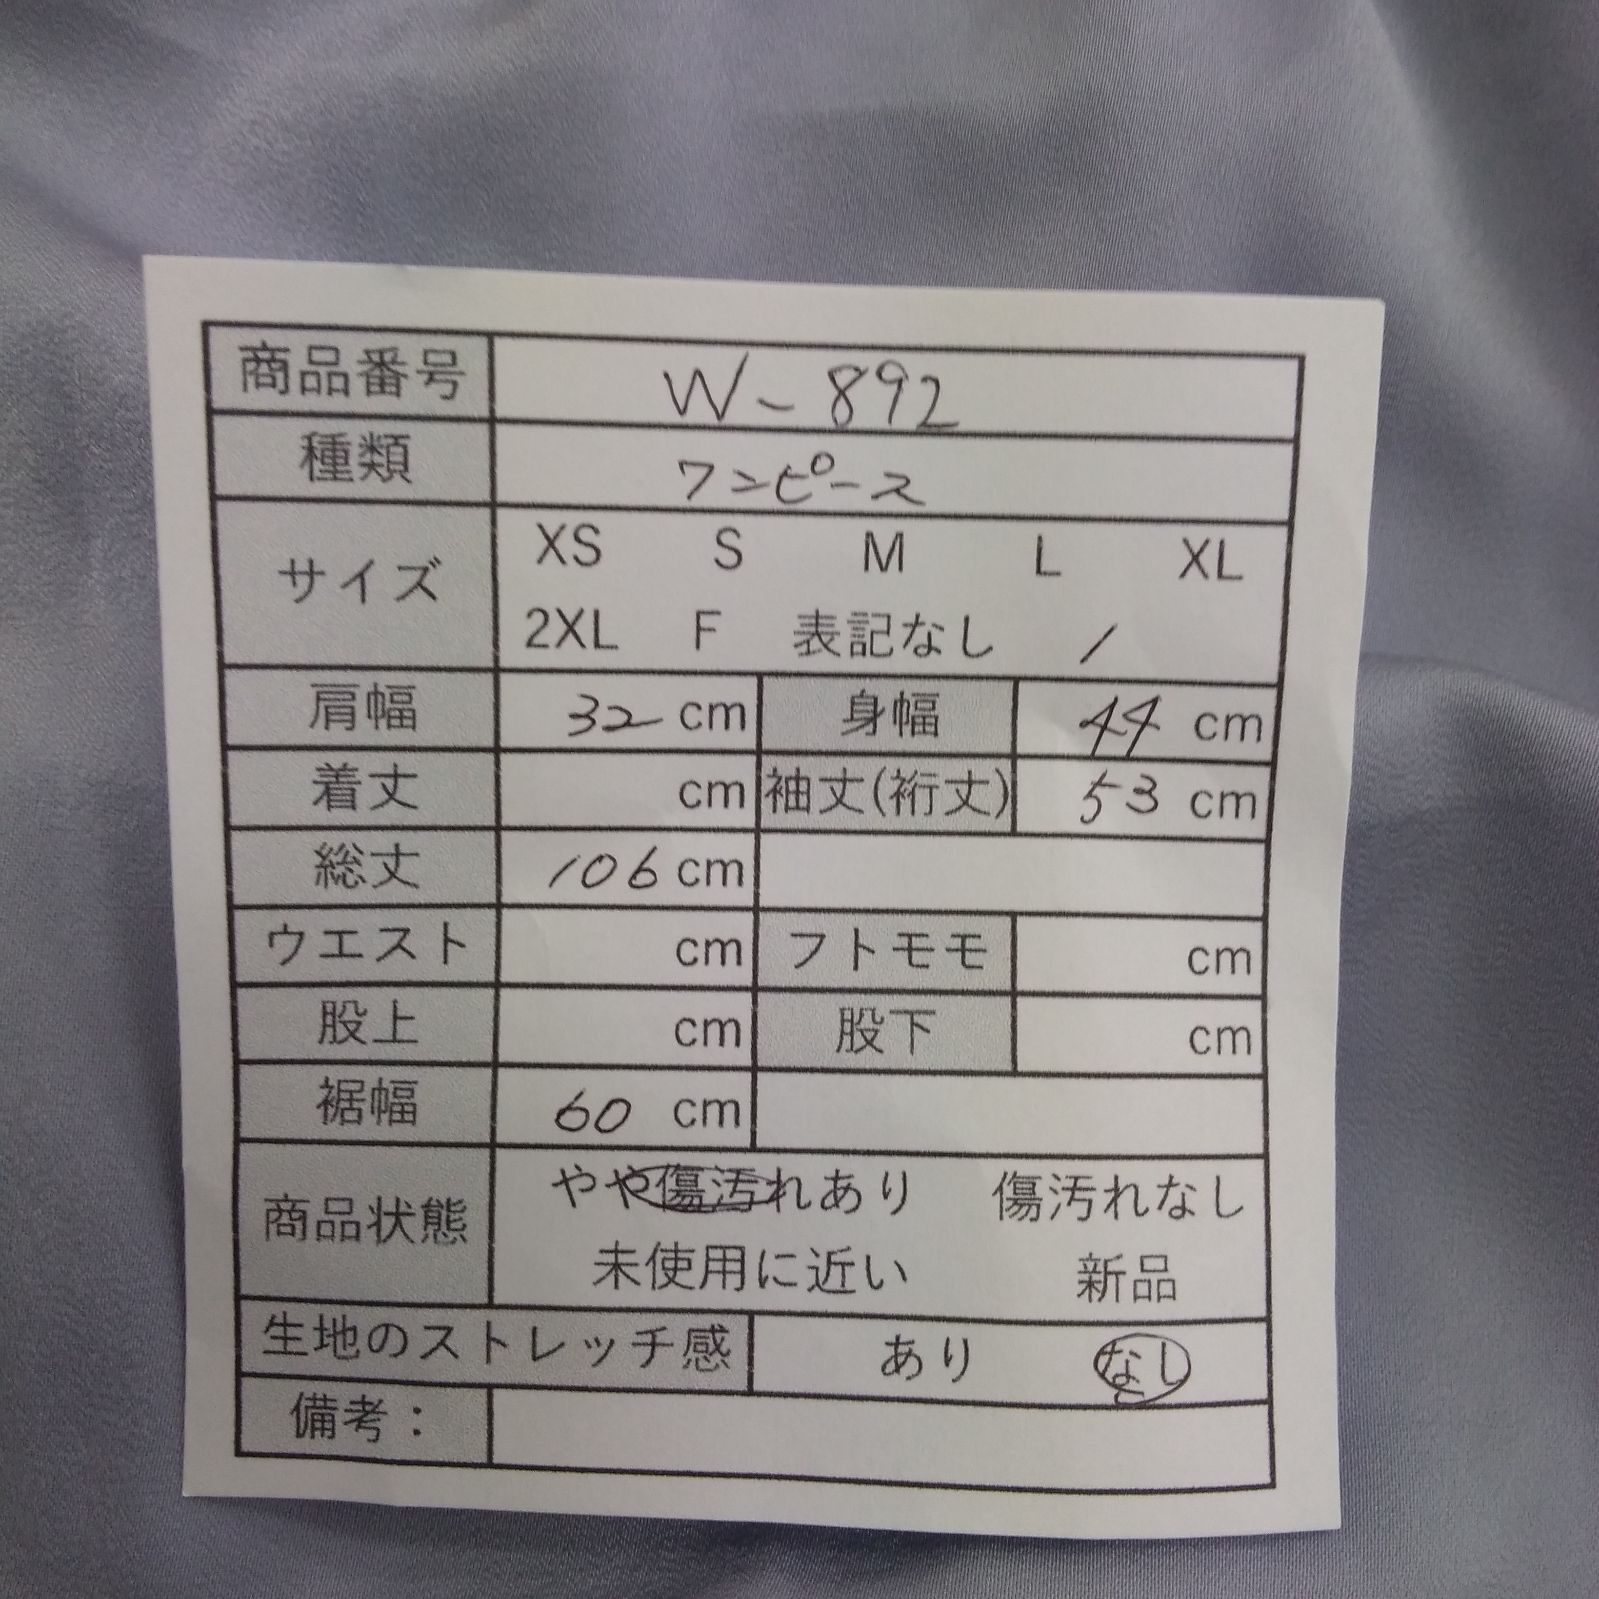 商品番号 W-892
種類 ワンピース
サイズ XS S M L XL
2XL F 表記なし /
肩幅 32 cm 身幅 44 cm
着丈 cm 袖丈(裄丈) 53 cm
総丈 106 cm
ウエスト cm フトモモ cm
股上 cm 股下 cm
裾幅 60 cm
商品状態 やや傷汚れあり 傷汚れなし
未使用に近い 新品
生地のストレッチ感 あり なし
備考：